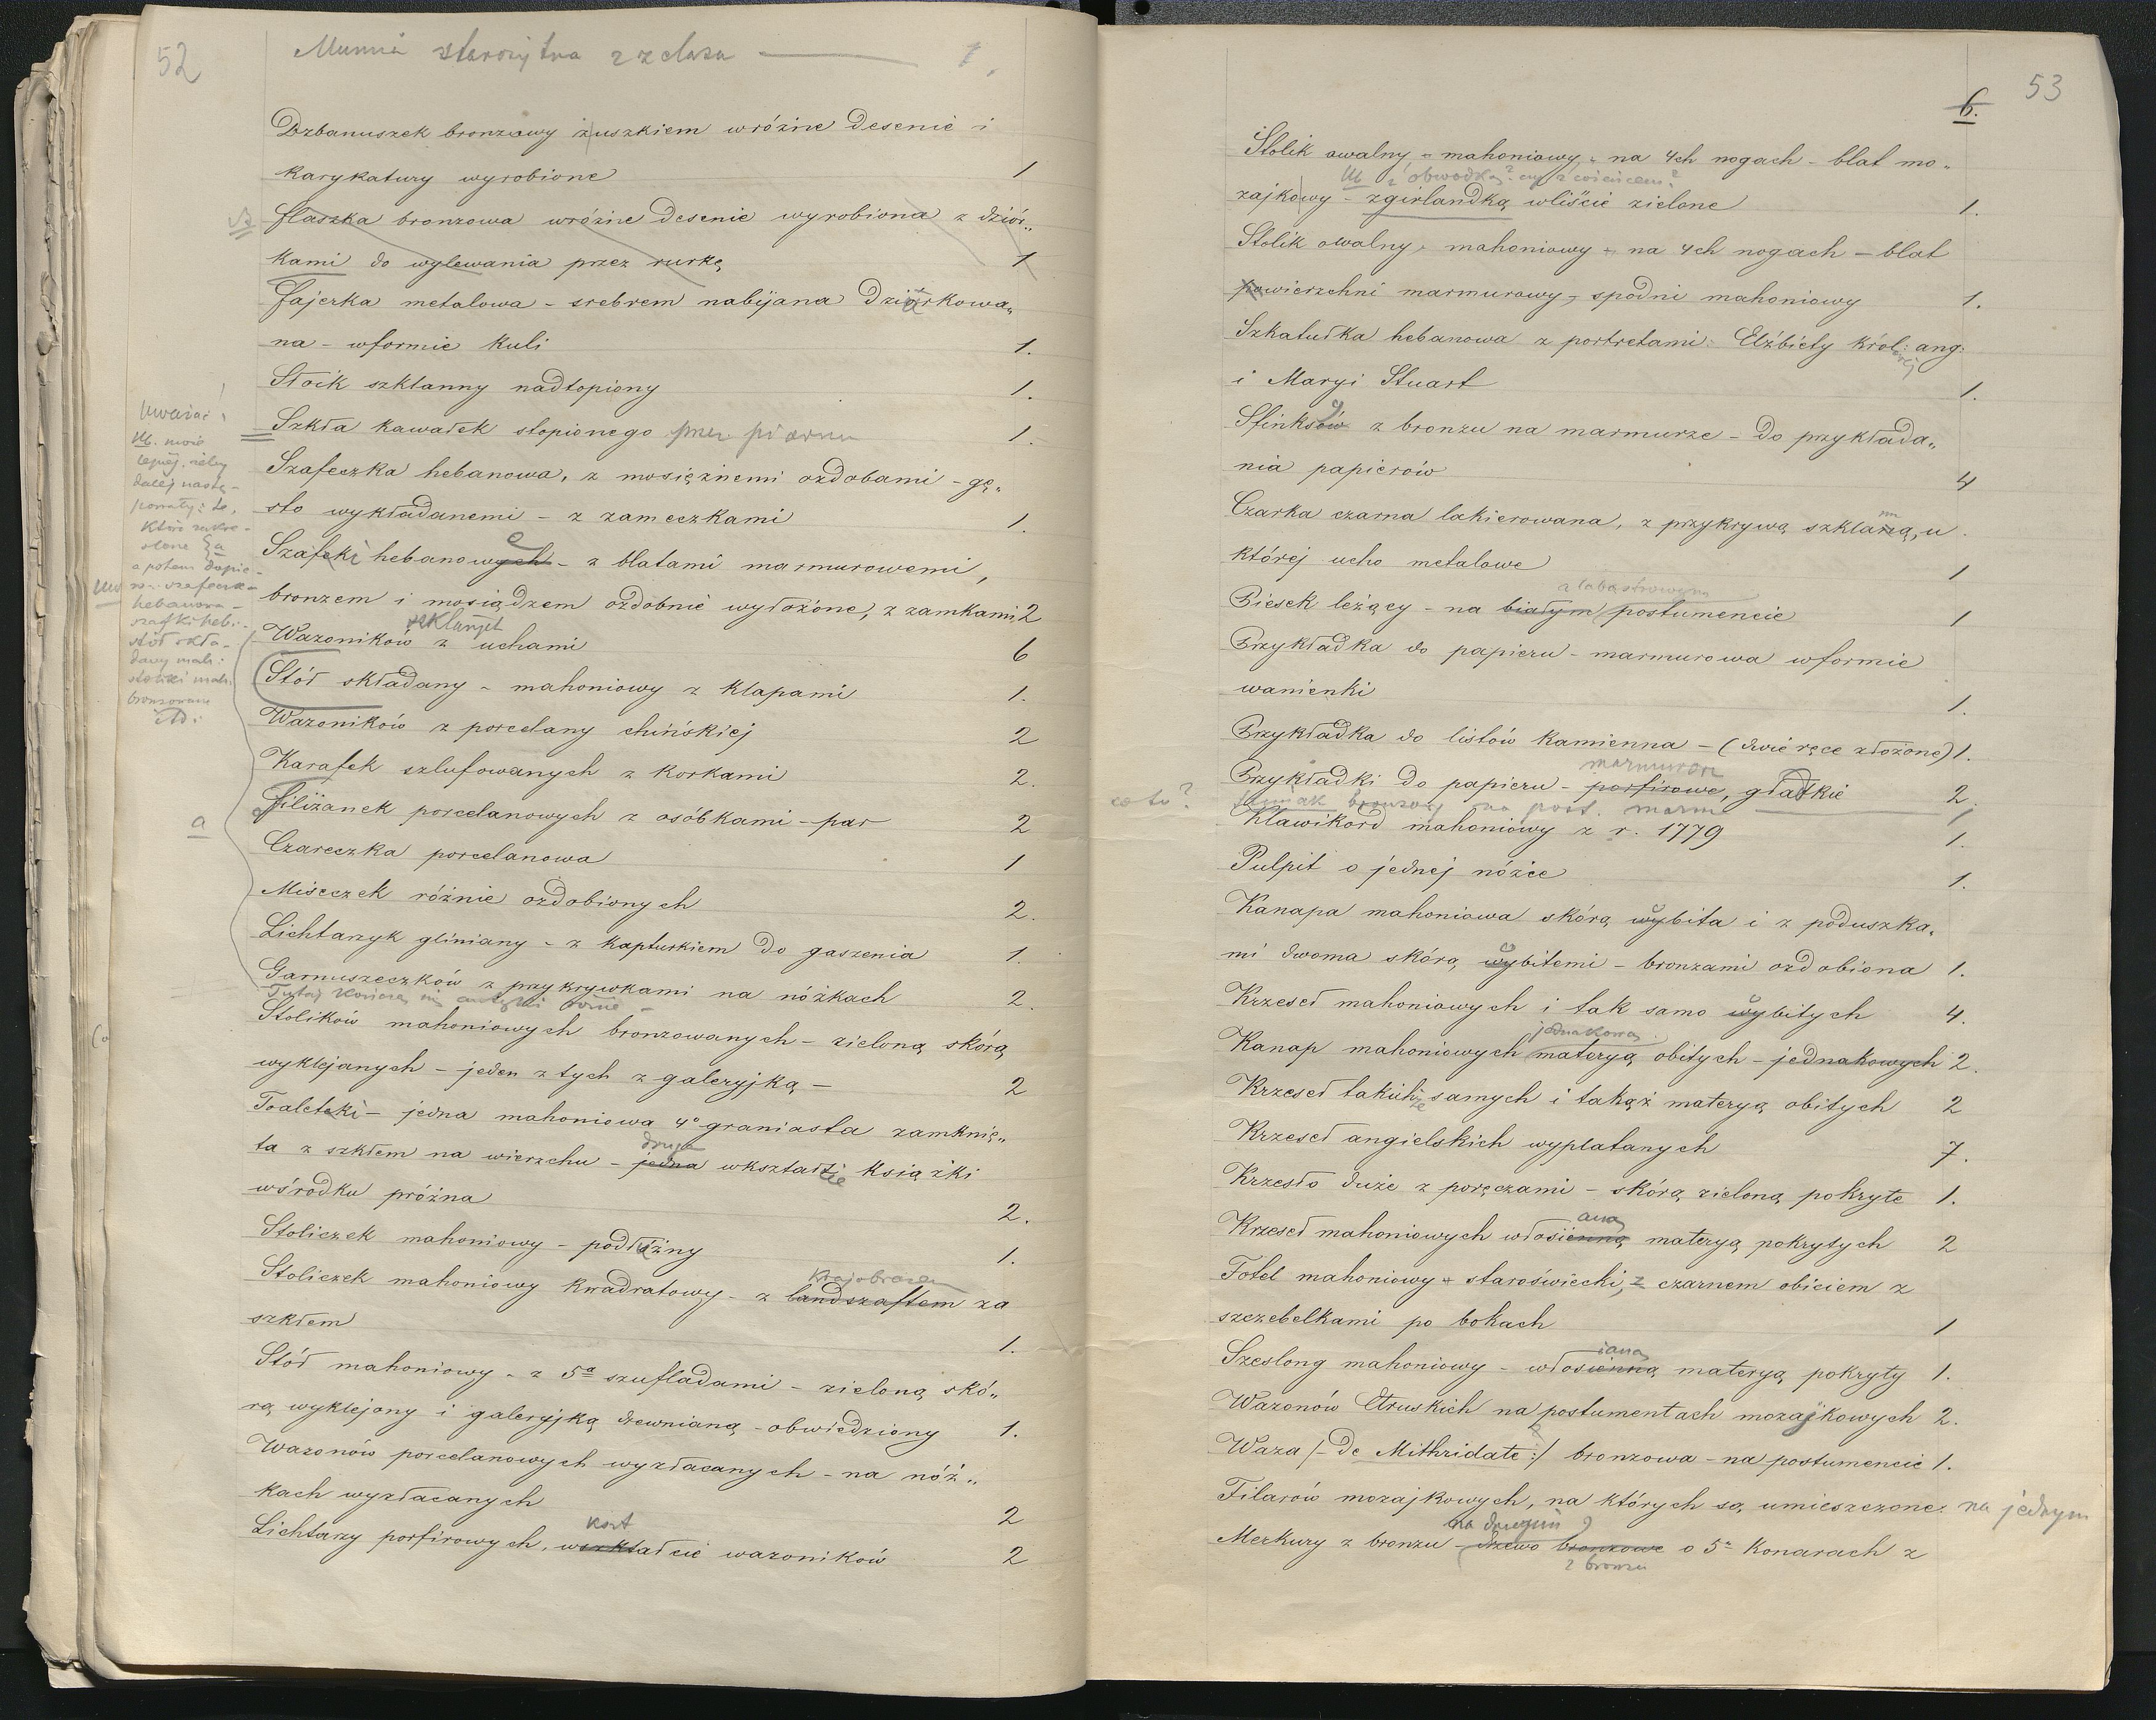 52
Mumia starożytna z żelaza — 1.
Dzbanuszek bronzowy z uszkiem wróżne desenie i
karykatury wyrobione 1
flaszka bronzowa wróżne desenie wyrobiona z dziór„
kami do wylewania przez rurkę 1
fajerka metalowa – srebrem nabijana dziórkowa„
na – wformie kuli 1.
Słoik szklanny nadtopiony 1.
Szkła kawałek stopionego przez piorun 1.
Szafeczka hebanowa, z mosiężnemi ozdobami – gę„
sto wykładanemi – z zameczkami 1.
Szafeki hebanowych – z blatami marmurowemi,
bronzem i mosiądzem ozdobnie wyłożone, z zamkami 2
szklannych
Wazoników z uchami 6
Stół składany – mahoniowy z klapami 1.
Wazoników z porcelany chińskiej 2
Karafek szlufowanych z korkami 2.
filiżanek porcelanowych z osóbkami – par 2
Czareczka porcelanowa 1
Miseczek różnie ozdobionych 2.
Lichtarzyk gliniany – z kapturkiem do gaszenia 1.
Garnuszeczków z przykrywkami na nóżkach 2.
Tutaj kończą się antyki
Stolików mahoniowych bronzowanych – zieloną skórą
wyklejanych – jeden z tych z galeryjką – 2
Toaletki – jedna mahoniowa 4º graniasta zamknię„
druga
ta z szkłem na wierzchu – jedna wkształcie książki
wśrodku próżna 2.
Stoliczek mahoniowy – podłużny 1.
krajobrazem
Stoliczek mahoniowy kwadratowy – z landszaftem za
szkłem 1.
Stół mahoniowy – z 5ª szufladami – zieloną skó„
rą wyklejony i galeryjką drewnianą – obwiedziony 1.
Wazonów porcelanowych wyzłacanych – na nóż„
kach wyzłacanych 2
kszt
Lichtarzy porfirowych, wszkładcie wazoników 2
Uważać!
NB. może
lepiej, żeby
dalej nastę-
powały: to,
które zakre-
ślone {a
a potem dopie-
ro szafeczka
hebanowa –
szafki heb.
stół skła-
dany mah:
stoliki mah.
bronzowane
itd.
a
53
6.
Stolik owalny – mahoniowy – na 4ch nogach – blat mo„
NB z obwódką? czy z wieńcem?
zajkowy – zgirlandką wliście zielone 1.
Stolik owalny – mahoniowy – na 4ch nogach – blat
powierzchni marmurowy, spodni mahoniowy 1.
Szkatułka hebanowa z portretami: Elżbiety król: ang:
i Maryi Stuart 1.
Sfinksów z bronzu na marmurze – do przykłada„
nia papierów 4
Czarka czarna lakierowana, z przykrywą szklaną, u
której ucho metalowe 1
alabastrowym
Piesek leżący – na białym postumencie 1
Przykładka do papieru – marmurowa wformie
wanienki 1.
Przykładka do listów kamienna – (dwie ręce złożone) 1.
marmurow
Przykładki do papieru – porfirowe, gładkie 2
co to? bronzowy na post. marm 1
Klawikord mahoniowy z r. 1779 1.
Pulpit o jednej nóżce 1.
Kanapa mahoniowa skórą wybita i z poduszka„
mi dwoma skórą wybitemi – bronzami ozdobiona 1.
Krzeseł mahoniowych i tak samo wybitych 4.
jednakową
Kanap mahoniowych materyą obitych – jednakowych 2.
Krzeseł takichże samych i takąż materyą obitych 2
Krzeseł angielskich wyplatanych 7.
Krzesło duże z poręczami – skórą zieloną pokryte 1.
aną
Krzeseł mahoniowych włosienną materyą pokrytych 2
Fotel mahoniowy – staroświecki, z czarnem obiciem z
szczebelkami po bokach 1
ianą
Szeslong mahoniowy – włosienną materyą pokryty 1.
Wazonów Etruskich na postumentach mozajkowych 2.
Waza /– De Mithridate :/ bronzowa – na postumencie 1.
Filarów mozajkowych, na których są umieszczone: na jednym
na drugim
Merkury z bronzu – drzewo bronzowe o 5ª konarach z
z bronzu